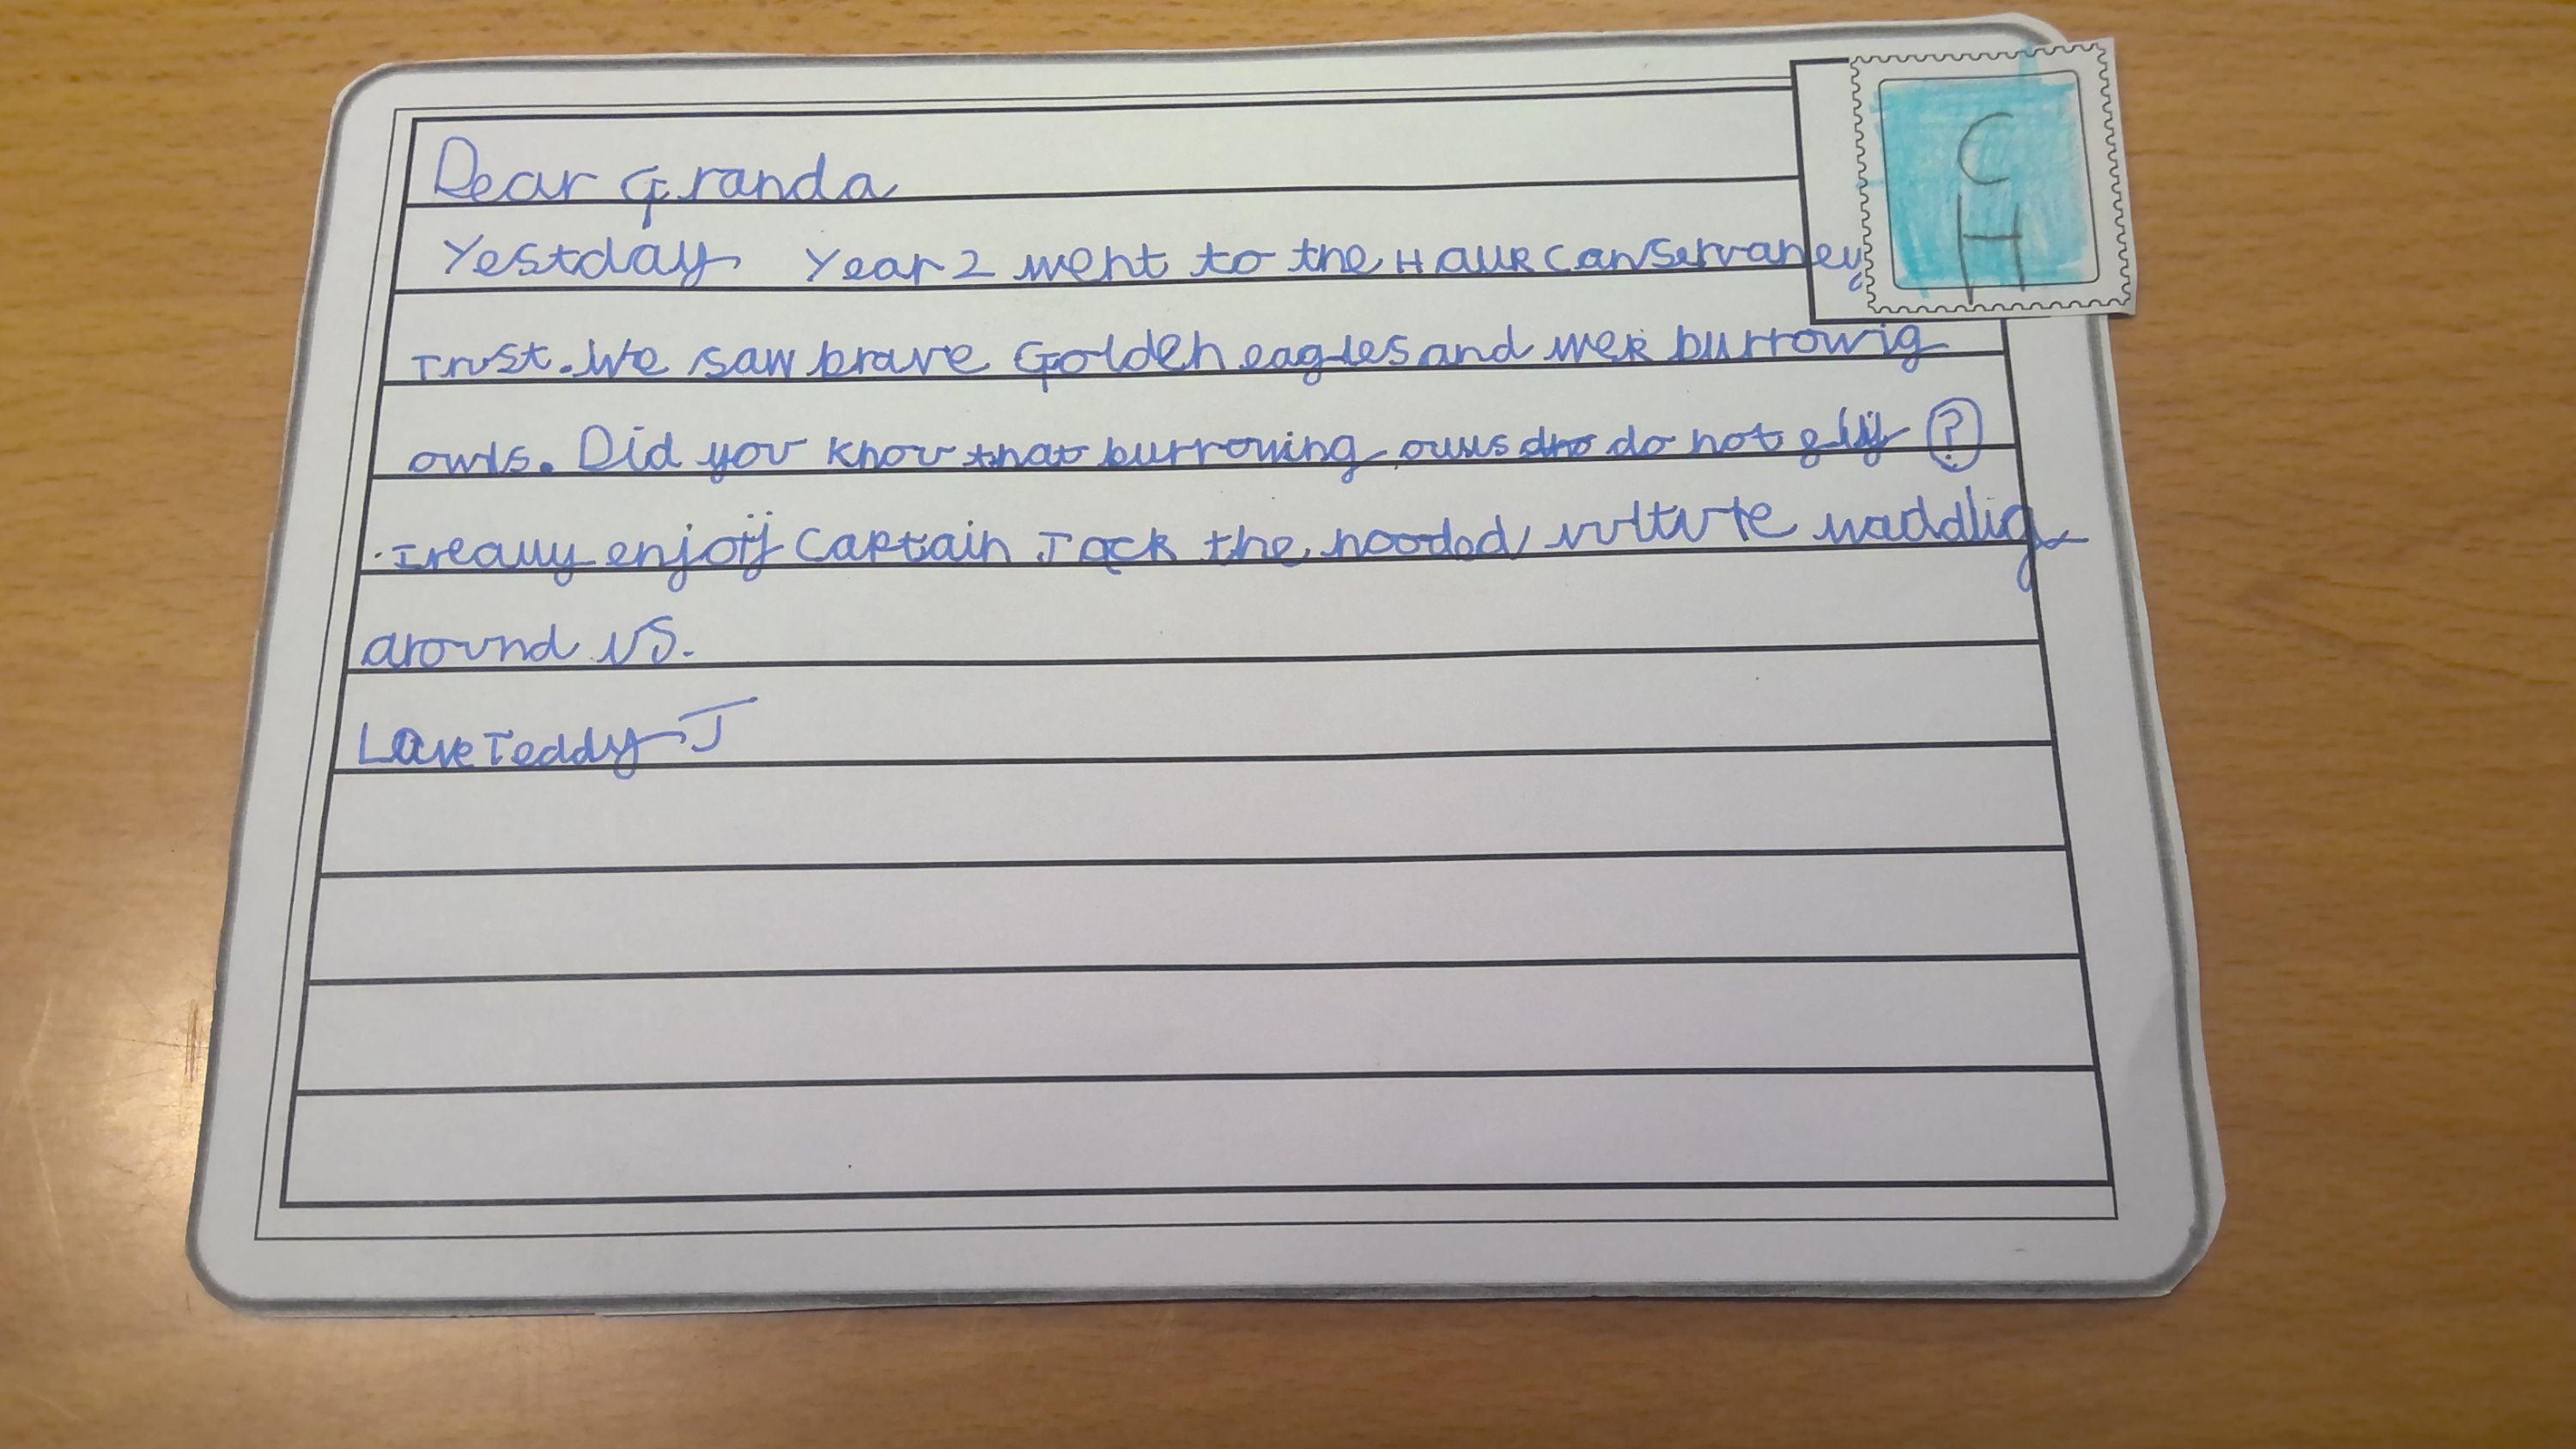 Dear Granda
Yestday Year 2 went to the Hauk Canservaney
Trust. We saw brave Golden eagles and wek burrowig
owls. Did you know that burrowing ouls dro do not gly ?
I really enjoy Captain Jack the hooded vulture waddlig
around us.
Love Teddy J
C
H